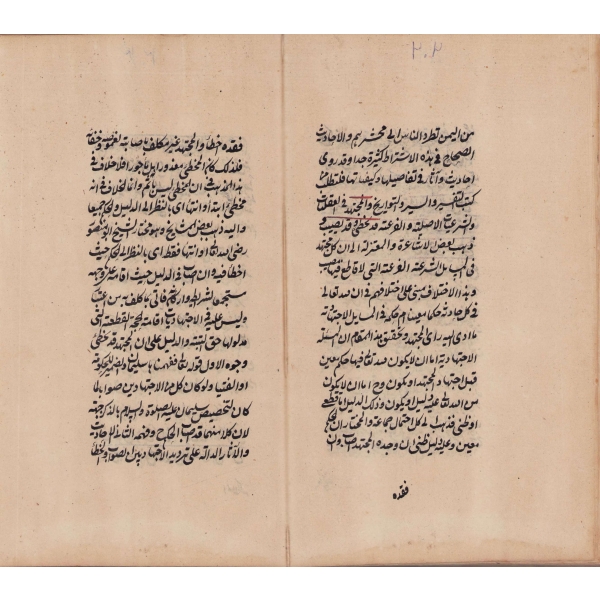 ٢٠٢
من اليمن تطرد الناس الى محشرهم والاحاديث
الصحاح في هذه الاشراط كثيرة جدا وقد روى
احاديث وآثار في تفاصيلها وكيفياتها فلتطلب من
كتب التفسير والسير والتواريخ والمجتهد في العقليات
والشرعيات الاصلية والفرعية قد يخطئ وقد يصيب و
ذهب بعض الاشاعرة والمعتزلة الى ان كل مجتهد
في المسائل الشرعية الفرعية التي لا قاطع فيها مصيب
وهذا الاختلاف مبنى على اختلافهم في ان لله تعالى
في كل حادثة حكما معينا ام حكمه في المسائل الاجتهادية
ما ادى اليه رأى المجتهد وتحقيق هذا المقام ان المسئلة
الاجتهادية اما ان لا يكون لله تعالى فيها حكم معين
قبل اجتهاد المجتهد او يكون وح اما ان لا يكون
من الله تعالى عليه دليل او يكون وذلك الدليل اما قطعى
او ظنى فذهب الى كل احتمال جماعة والمختار ان الحكم
معين وعليه دليل ظنى ان وجده المجتهد اصاب وان
فقده
فقده خطأ والمجتهد غير مكلف باصابته لغموضه وخفائه
فلذلك كان المخطئ معذورا بل ماجورا فلا خلاف في
هذا المذهب في ان المخطئ ليس باثم وانما الخلاف في انه
مخطئ ابتداء وانتهاء اى بالنظر الى الدليل والحكم جميعا
واليه ذهب بعض المشايخ وهو مختار الشيخ ابى منصور
رضى الله تعالى او انتهاء فقط اى بالنظر الى الحكم حيث
اخطأ فيه وان اصاب في الدليل حيث اقامه على وجهه
مستجمعا لشرائطه واركانه فاتى بما كلف به من الاعتبارات
وليس عليه في الاجتهاديات اقامة الحجة القطعية التى
مدلولها حق البتة والدليل على ان المجتهد قد يخطئ
وجوه الاول قوله تعالى ففهمناها سليمان والضمير للحكومة
او الفتيا ولو كان كل من الاجتهادين صوابا لما
كان لتخصيص سليمان عليه الصلوة والسلام بالذكر جهة
لان كلا منهما قد اصاب الحكم ح وفهمه الثانى الاحاديث
والآثار الدالة على ترديد الاجتهاد بين الصواب والخطأ